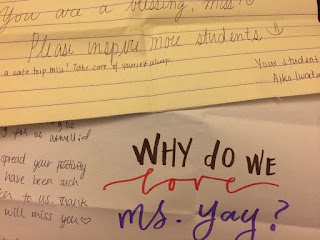 You are a blessing, miss!
Please inspire more students
a safe trip miss! Take care of yourself always.
Your student
Aiko
spread your positivity
have been such
to us. Thank
will miss you♡
WHY do WE
love
ms. yay?